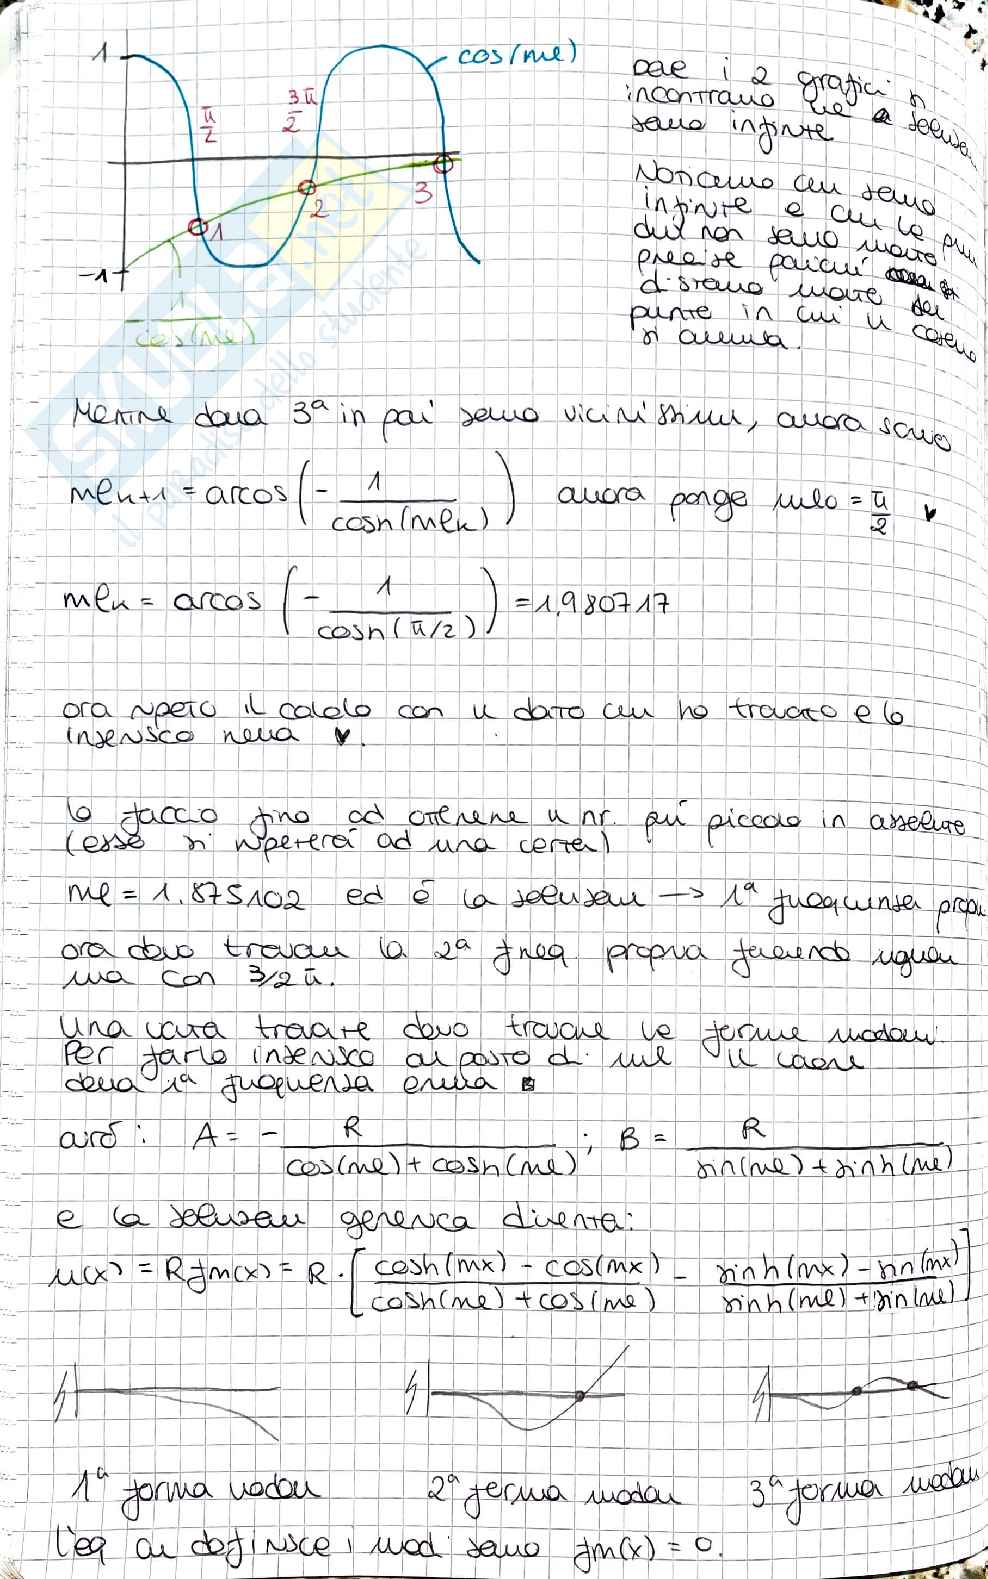 1
cos(ml)
π/2
3π/2
1
2
3
-1
- 1/cos(ml)
i 2 grafici si
incontrano le soluzioni
sono infinite
Notiamo che sono
infinite e che le prime
due non sono molto
precise poiché
distano molto dai
punti in cui il coseno
si annulla.
Mentre dalla 3ª in poi sono vicinissimi, allora sono
ml_{k+1} = arcos(- 1/cosh(ml_k)) allora pongo ml_0 = π/2
ml_k = arcos(- 1/cosh(π/2)) = 1,980717
ora ripeto il calcolo con il dato che ho trovato e lo
inserisco nella ♥.
lo faccio fino ad ottenere il nr. più piccolo in assoluto
(esso si ripeterà ad una certa)
ml = 1.875102 ed è la soluzione → 1ª frequenza propria
ora devo trovare la 2ª freq propria facendo
con 3/2 π.
Una volta trovate devo trovare le forme modali.
Per farlo inserisco al posto di ml il valore
della 1ª frequenza
avrò: A = - R/(cos(ml)+cosh(ml)) ; B = R/(sin(ml)+sinh(ml))
e la soluzione generica diventa:
u(x) = R fm(x) = R · [(cosh(mx) - cos(mx))/(cosh(ml) + cos(ml)) - (sinh(mx) - sin(mx))/(sinh(ml) + sin(ml))]
1ª forma modale 2ª forma modale 3ª forma modale
l'eq che definisce i modi sono fm(x) = 0.
SKUOLA.net
il paradiso dello studente